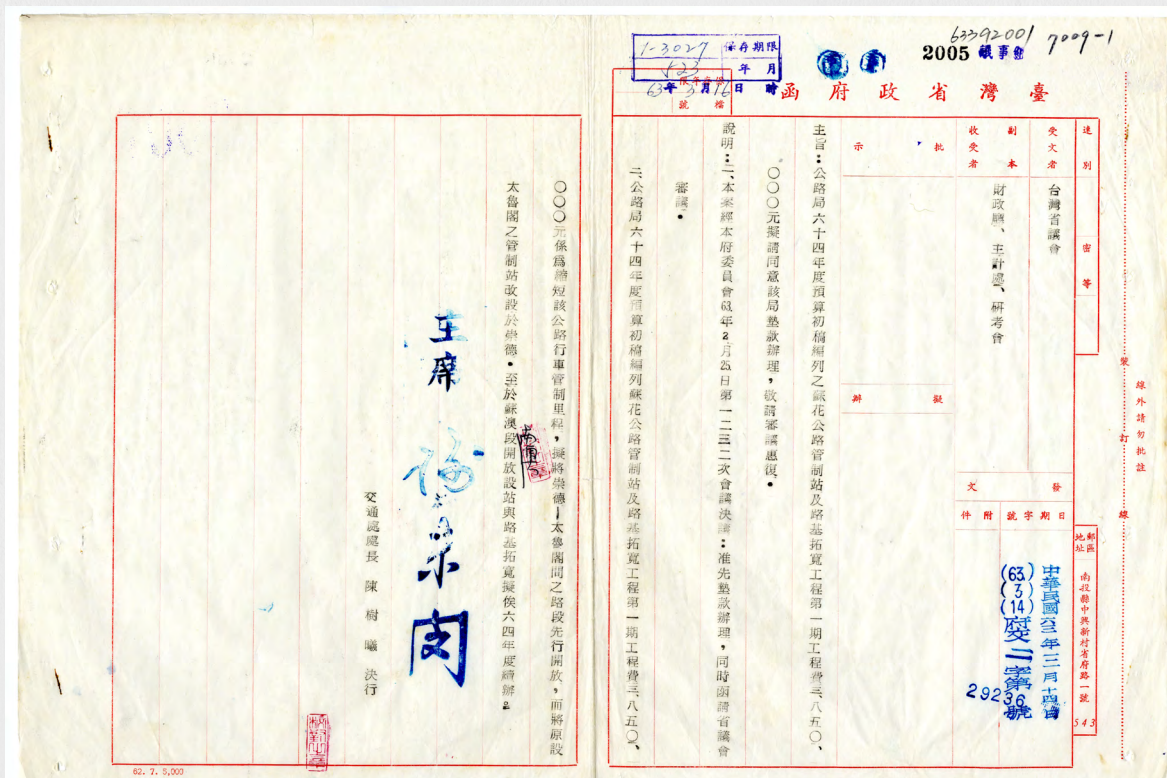 63392001
7009-1
2005 議事組
1-3027 保存期限
523 年月
63年3月16日 時
檔號
臺灣省政府函
速別
密等
受文者 台灣省議會
副本收受者 財政廳、主計處、研考會
批示
擬辦
發文
日期字號附件
中華民國六三年三月十四日
(63)(3)(14)府交二字第29236號
郵區地址 南投縣中興新村省府路一號 543
裝訂線
線外請勿批註
主旨:公路局六十四年度預算初稿編列之蘇花公路管制站及路基拓寬工程第一期工程費三、八五〇、
〇〇〇元擬請同意該局墊款辦理,敬請審議惠復。
說明:一、本案經本府委員會63年2月25日第一二三二次會議決議:准先墊款辦理,同時函請省議會
審議。
二、公路局六十四年度預算初稿編列蘇花公路管制站及路基拓寬工程第一期工程費三、八五〇、
〇〇〇元係為縮短該公路行車管制里程,擬將崇德—太魯閣間之路段先行開放,而將原設
太魯閣之管制站改設於崇德。至於蘇澳段開放設站與路基拓寬擬俟六四年度續辦。
主席
交通處處長 陳樹曦 決行
62. 7. 8,000